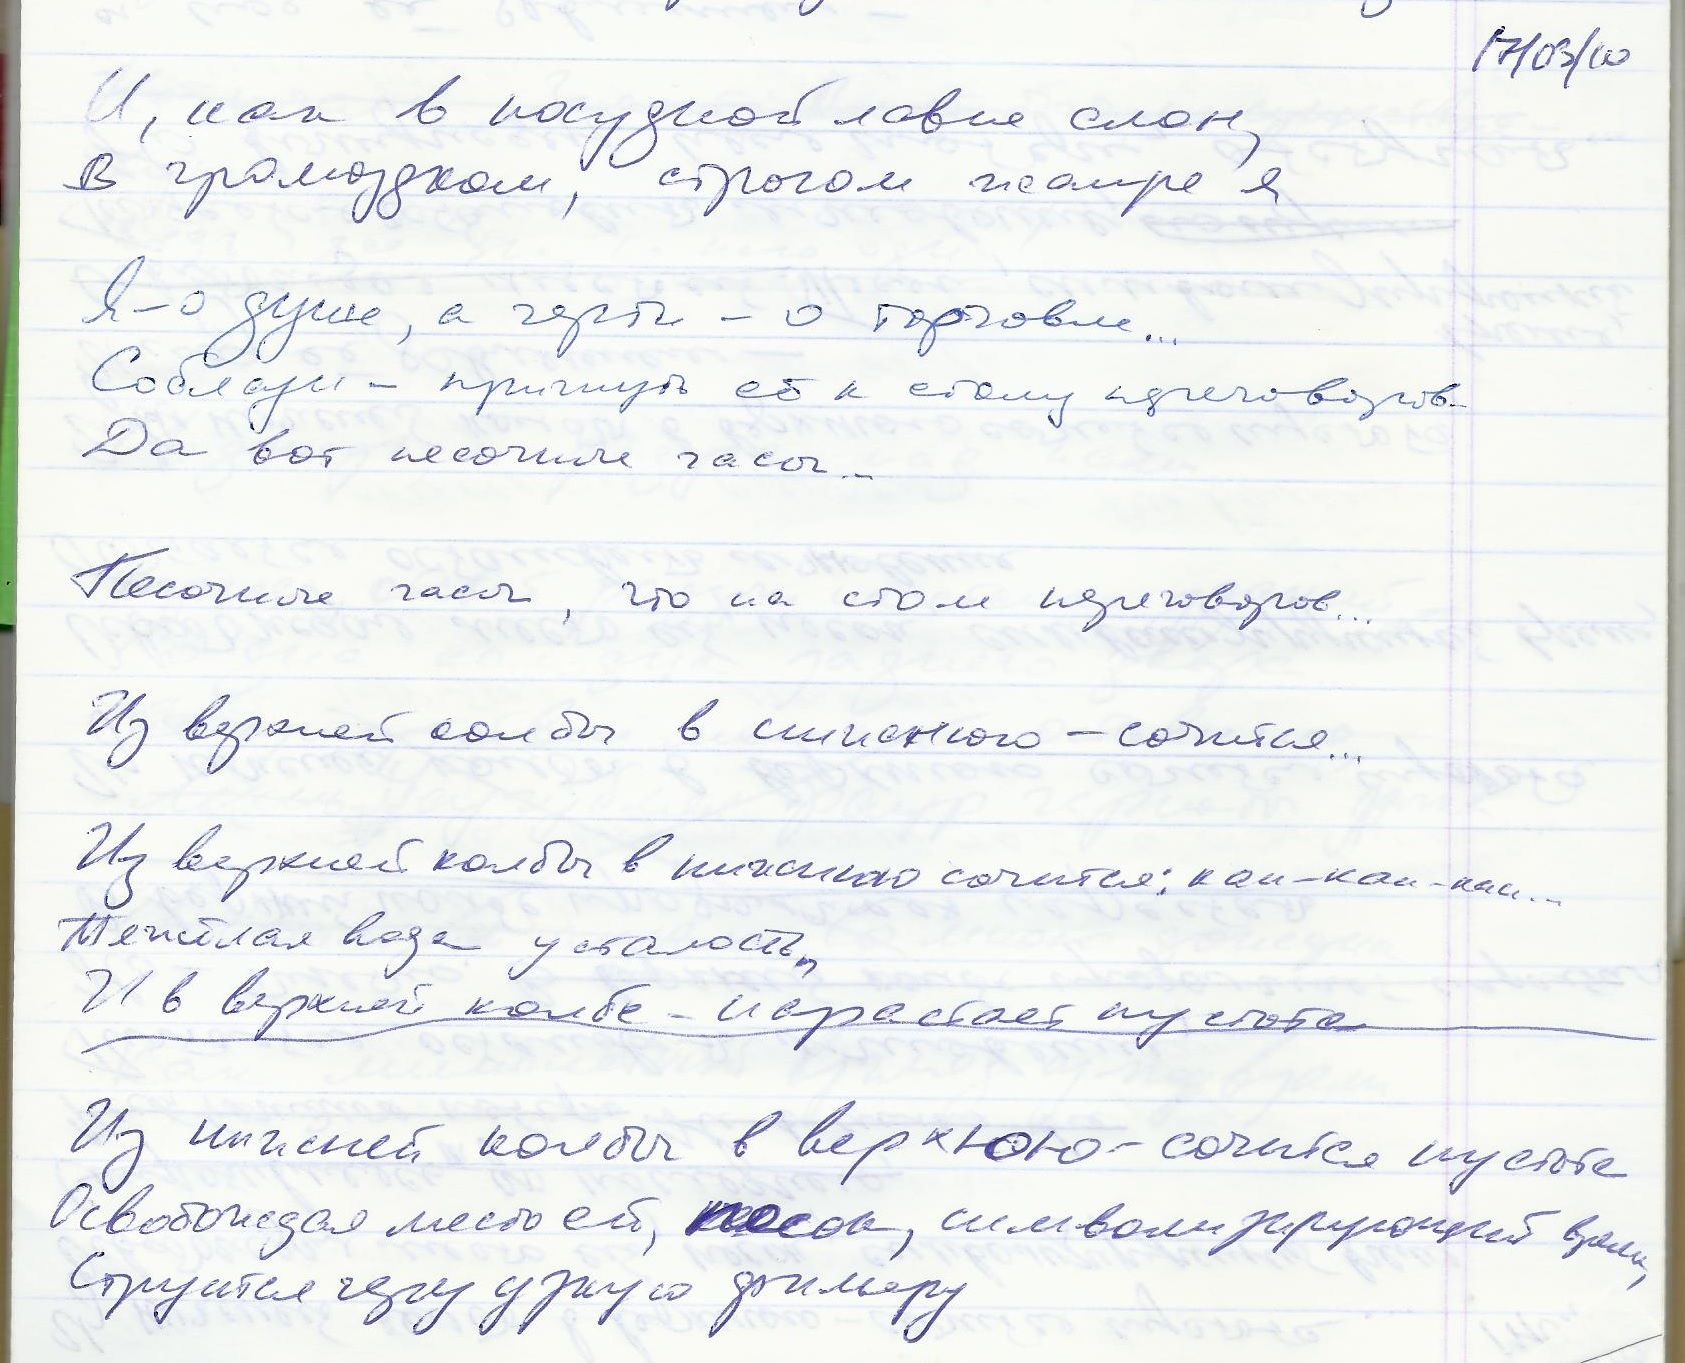 17/03/10
И, как в посудной лавке слон,
В громоздком, строгом жанре я
Я – о душе, а черти – о торговле...
Соблазн – пригнуть её к столу переговоров...
Да вот песочные часы...
Песочные часы, что на столе переговоров...
Из верхней колбы в нижнюю – сочится...
Из верхней колбы в нижнюю сочится: кап-кап-кап...
Тяжёлая вода усталость,,
И в верхней колбе – нарастает пустота
Из нижней колбы в верхнюю – сочится пустота
Освобождая место ей, песок, символизирующий время,
Струится через узкую